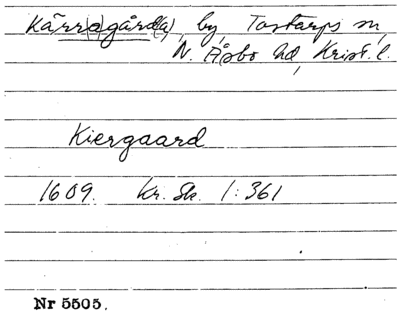 Kärr(a)gård(a), by, Tostarps sn,
N. Åsbo hd, Krist. l.
Kiergaard
1609. Kr. Sk. 1:361
Nr 5505.